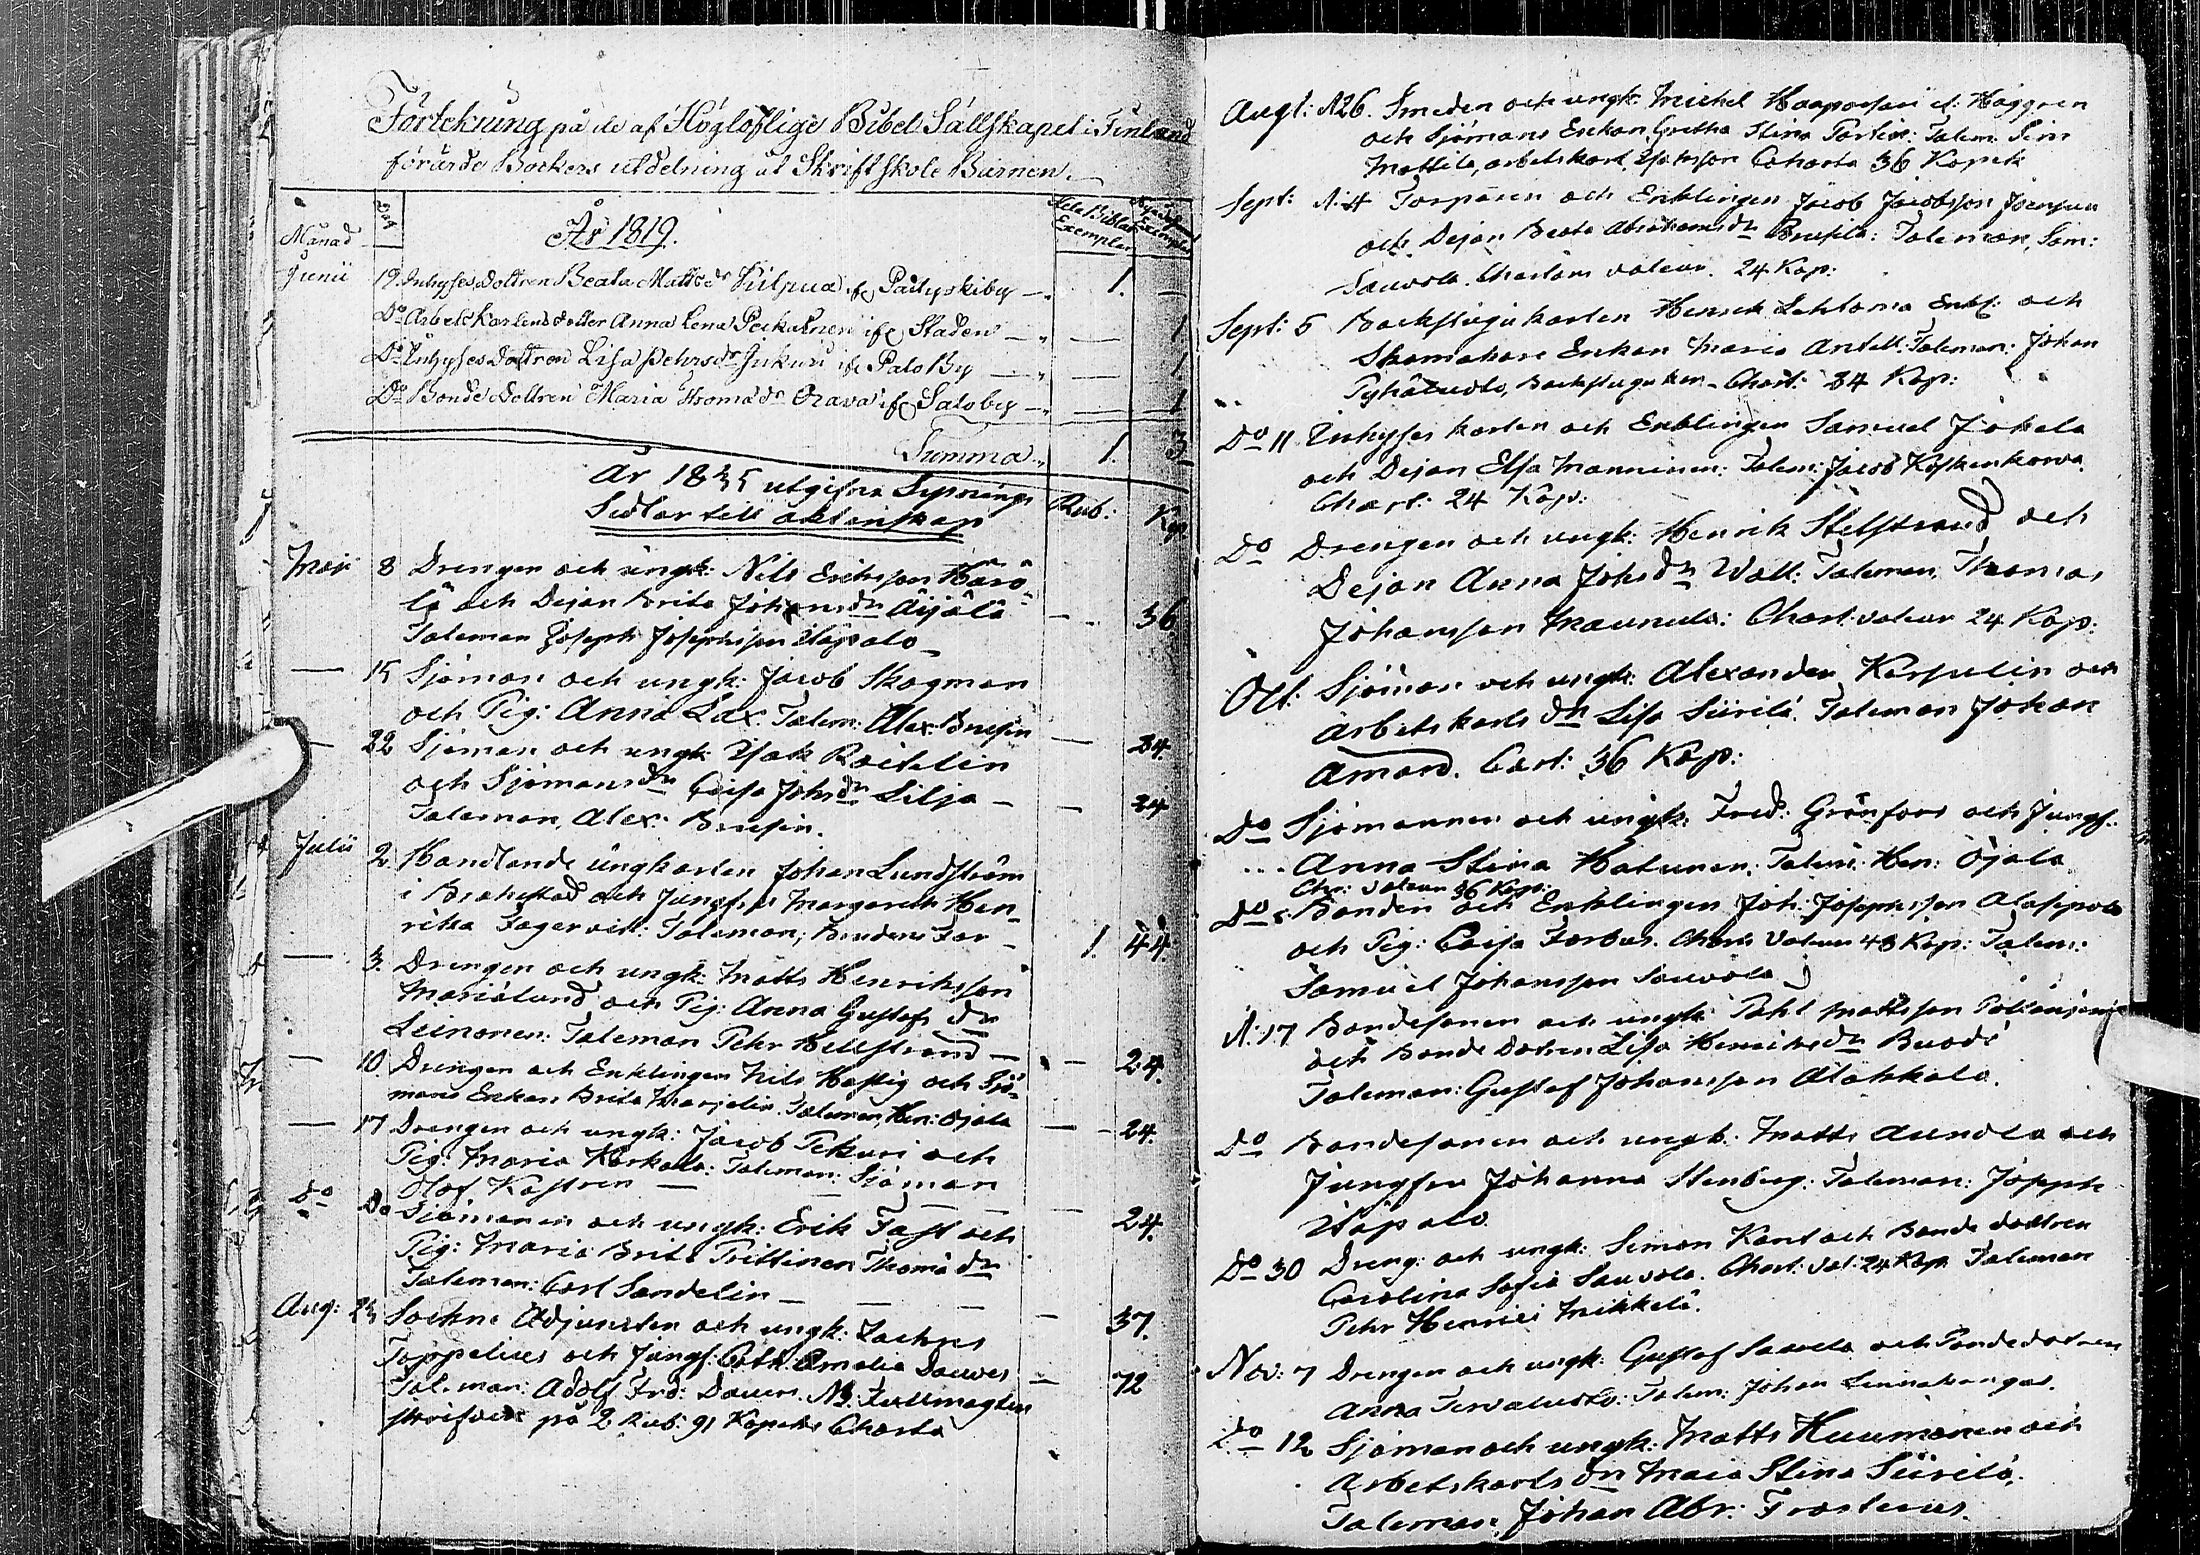 Förtekning på de af Höglofliga Bibel Sällskapet i Finland
förärde Böckers utdelning åt Skriftskole Barnen.
Månad Dag År 1819. Hela Biblar Exemplar Exemplar
Junii 19. Inhyses Dottren Beata Matts dr ifr Pattyoki by — 1. —
Do Arbets Karlens dotter Anna Lena ifr Staden — 1
Do Inhyses Dottren Lisa Pehrs dr ifr Palo By — 1
Do Bonde Dottren Maria Thomæ dr Orava ifr Salo by — 1
Summa 1. 3
År 1835 utgifna Lysnings
Sedlar till äktenskap Rub: Kop.
Maji 8 Drengen och ungk: Nils Eriksson
och Dejan Brita Johans dr Äijälä 36.
Taleman Joseph Josephsson Ylipalo
— 15 Sjöman och ungk: Jacob Skogman
och Pig: Anna Lax. Talem: Alex: Brusin 24.
— 22 Sjöman och ungk Isak Roithlin
och Sjömans dr Caisa Johs dr Lilja — 24
Taleman, Alex: Brusin.
Julii 2 Handlande ungkarlen Johan Lundström
i Brahestad och Jungfru Margareth Hen-
rika Fagerroth: Taleman, Brudens Far 1. 44.
— 3. Drengen och ungk: Matts Henriksson
Marielund och Pig: Anna Gustafs dr
Leinonen: Taleman Pehr Hellstrand — 24.
— 10 Drengen och Enklingen Nils Hastig och Sjö-
mans Enkan Brita Marjelin. Taleman, Hen: Ojala 24.
— 17 Drengen och ungk: Jacob Pekuri och
Pig: Maria Korkala: Taleman: Sjöman
Olof Kastren 24.
Do Do Sjömannen och ungk: Erik Fast och
Pig: Maria Brita Prittinen Thomæ dr
Taleman: Carl Sandelin — 37.
Aug: 23 Sockne Adjuncten och ungk: Zachris
Toppelius och Jungf: Cath: Amalia Dauer 72
Taleman: Adolf Frd: Dauer. NB. Fullmagten
skrifven på 2 Rub: 91 Kopeks Charta
Augt: N26. Smeden och ungk: Michel Haapasaari el: Häggren
och Sjömans Enkan, Gretha Stina Partin: Talem: Sim
Mattila, arbetskarl, Charta 36 Kopek
Sept: N: 4 Torparen och Enklingen Jacob Jacobsson
och Dejan Beata Abrahams dr: Taleman, Sam:
Sauvola. Chartans valeur. 24 Kop:
Sept: 5 Backstugukarlen Henrik Lehtoma Enkl: och
Skomakare Enkan Maria Antell: Taleman: Johan
Pyhäluoto, Backstugukar. Chart: 24 Kop:
Do 11 Inhyses karlen och Enklingen Samuel Jokela
och Dejan Elsa Manninen: Talem: Jacob Koskenkorva.
Chart: 24 Kop:
Do Drengen och ungk: Henrik Stelstrand och
Dejan Anna Johs dr Wall: Taleman, Thomas
Johansson Maunula: Chart: valeur 24 Kop:
Oct: Sjöman och ungk: Alexander Karpelin och
Arbetskarls dr Lisa Siirilä. Taleman Johan
Aman. Cart: 36 Kop:
Do Sjömannen och ungk: Fred: Grönfors och Jungf:
Anna Stina Hatunen: Talem: Hen: Ojala
Chr: valeur 36 Kop:
Do Bonden och Enklingen Joh: Josephsson Alasppola
och Pig: Caisa Forbus. Charts Valeur 48 Kop: Talem:
Samuel Johansson Sauvola
N. 17 Bondesonen och ungk: Pehl Mattsson
och Bonde Dottren Lisa Henriks dr Ruodi
Taleman: Gustaf Johansson Alakkala.
Do Bondesonen och ungk: Matts Aunola och
Jungfru Johanna Stenberg. Taleman: Joseph
Ylipalo
Do 30 Dreng: och ungk: Simon Kant och Bonde dottren
Carolina Sofia Sauvola. Chart: Val: 24 Kop: Taleman
Pehr Henrici Mikkelä.
Nov: 7 Drengen och ungk: Gustaf Saarela och Bondedottren
Anna Tervaluoto: Talem: Johan Linnakangas.
Do 12 Sjöman och ungk: Matts Huumonen och
Arbetskarls dr Maria Stina Siirilä.
Taleman: Johan Abr: Frosterus.